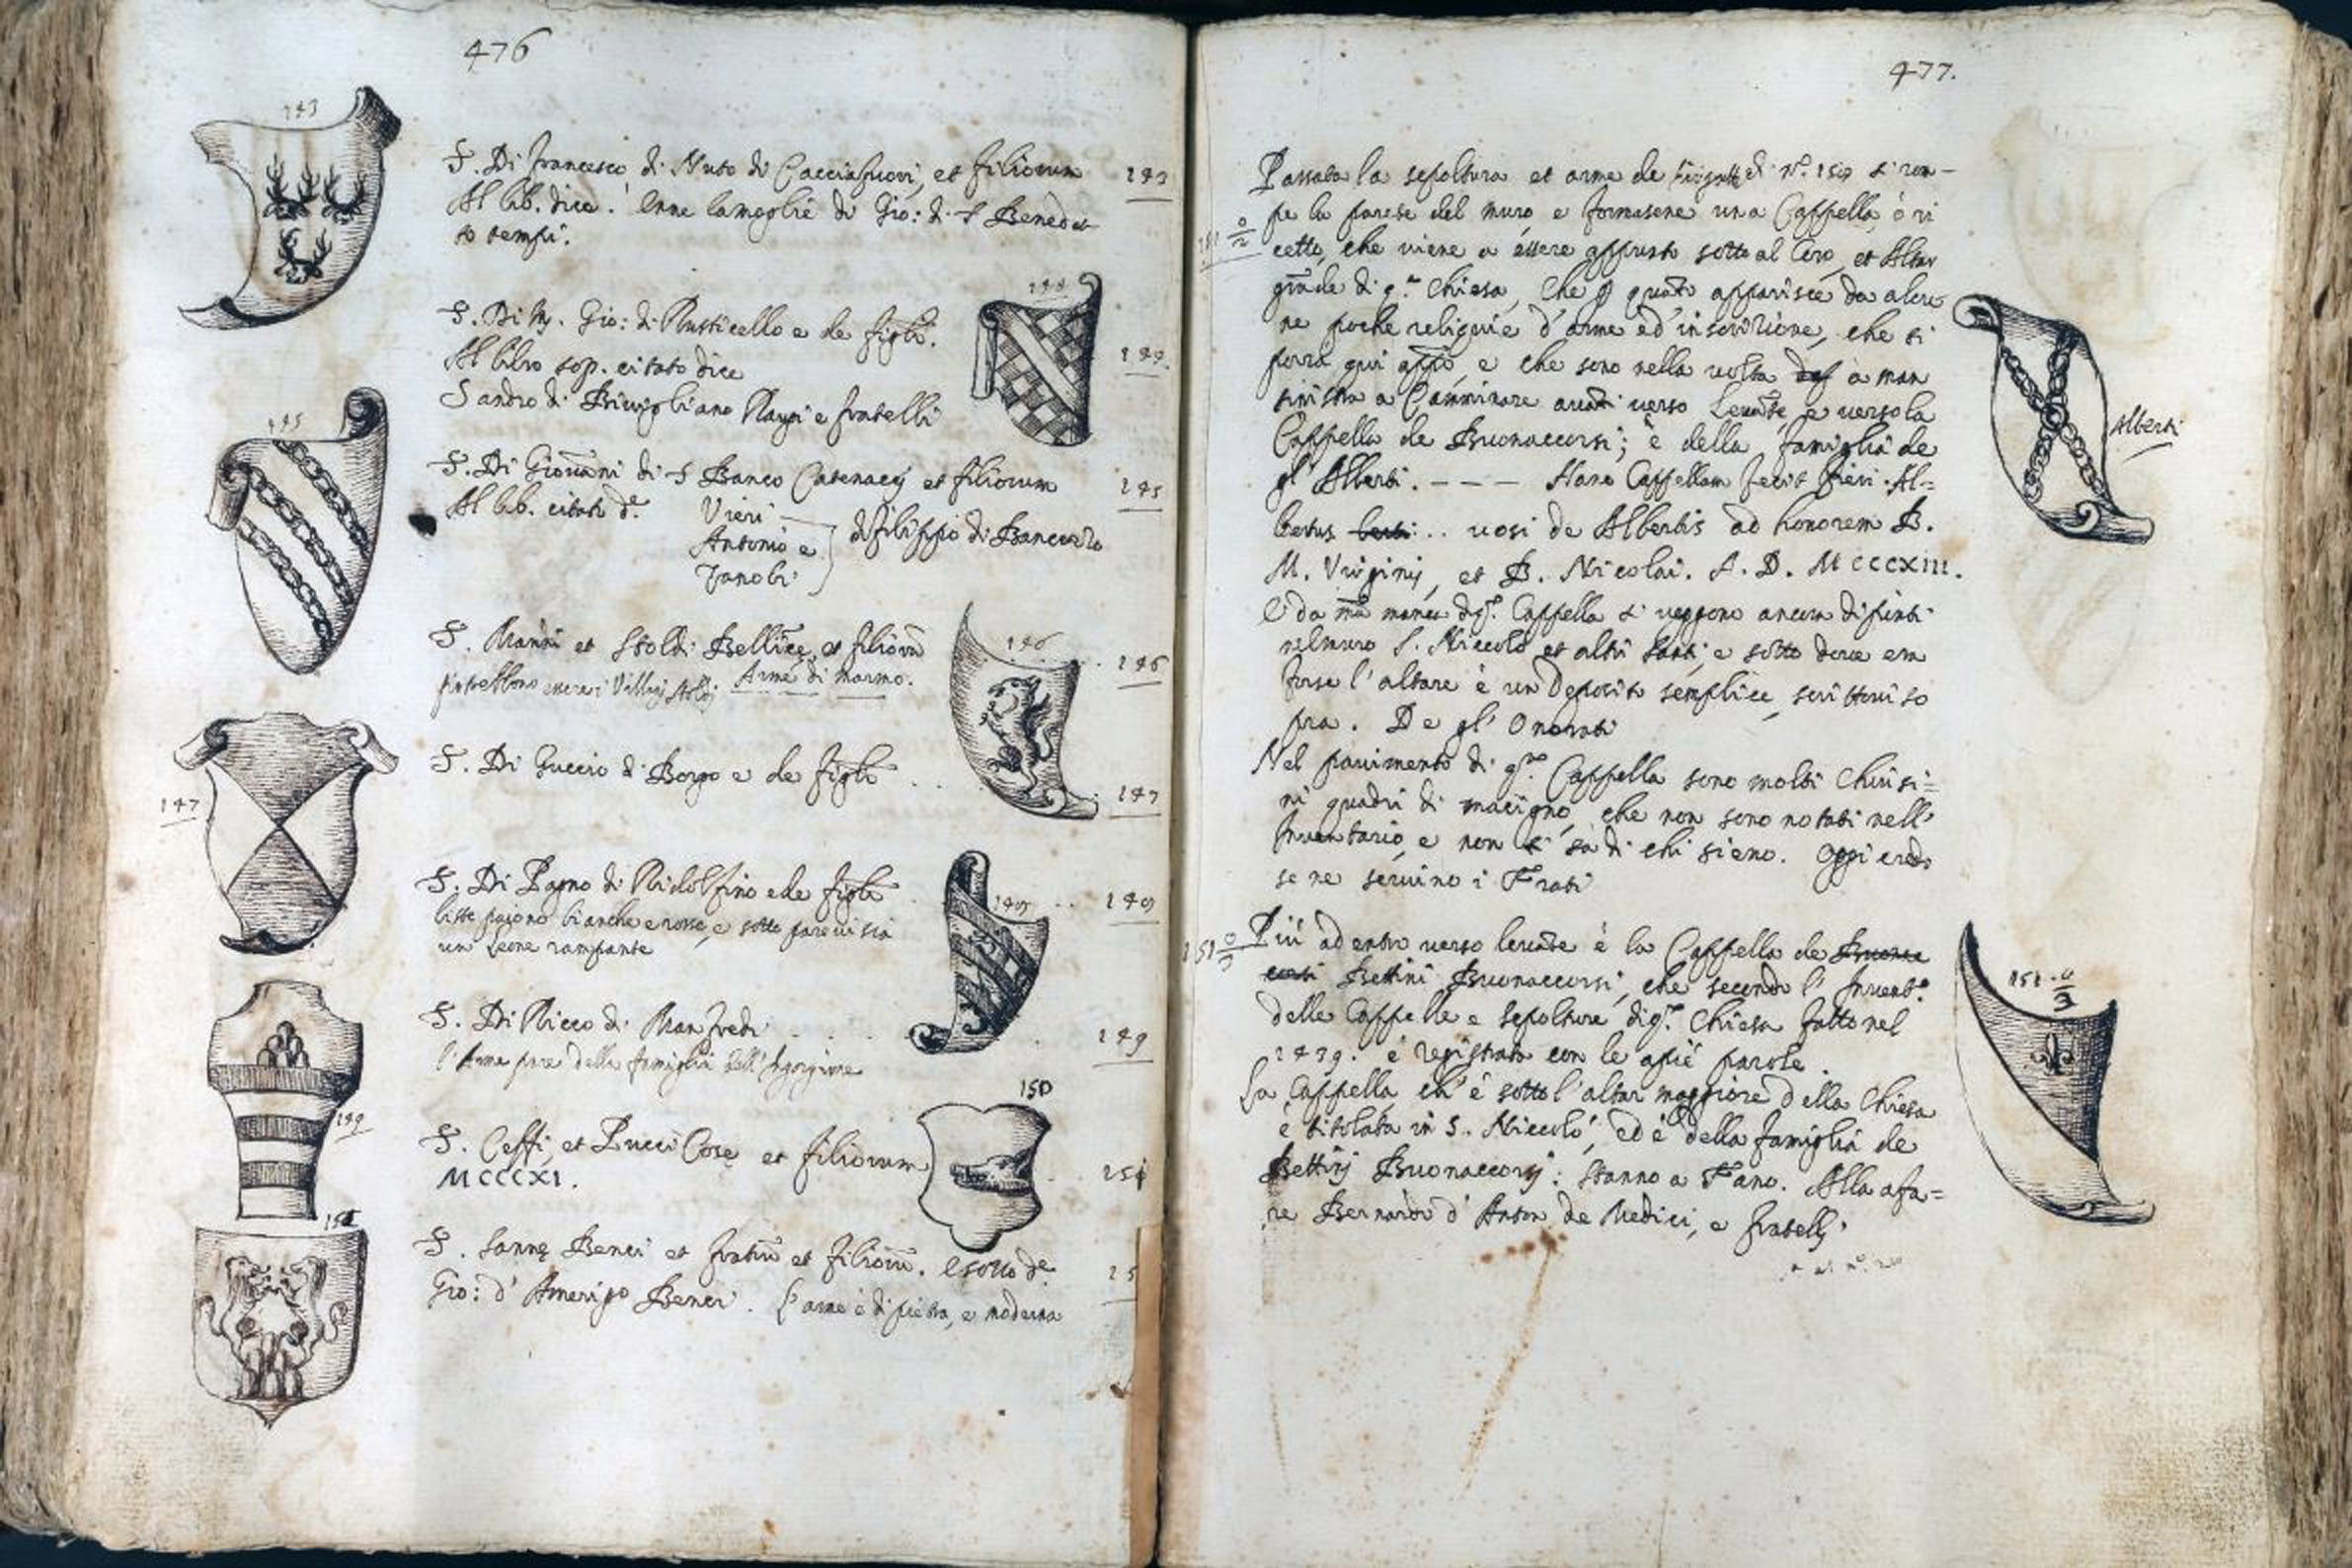 476
143
S. Di Francesco di Nuto di Cacciafuori, et filiorum 143
Al lib. dice. Enne la moglie di Gio: di S Benedet
to tempi.
144
S. Di M. Gio: di Rusticello e de figli.
Al libro sop. citato dice 144.
Sandro di Bivigliano Raugi e fratelli
145
S. Di Giovāni di S Banco Catenacci et filiorum 145
Al lib. citato de. Vieri
Antonio e di Filippo di Bancozzo
Zanobi
S. Nanni et Stoldi Bellincę, et filiorū 146
146
potrebbono essere i Arme di marmo.
S. Di Guccio di Borgo e de figli
147
147
S. Di Pagno di Ridolfino e de figli 148
148
liste paiono bianche e rosse, e sotto parevi sia
un Leone rampante
S. Di Ricco di Manfredi 149
l'Arme pare della famiglia dell'
149
150
S. Ceffi, et Pucci Cose et filiorum 151
MCCCXI.
151
S. Sannę Benci et fratrū et filiorū. E sotto de. 15
Gio: d' Amerigo Benci. L'arme è di pietra, e moderna
477.
Passata la sepoltura et arme de di No. 150 si rom-
pe la parete del muro, e formasene una Cappella, ò ri
151 0/2
cetto, che viene a essere appunto sotto al Coro, et Altar
grāde di q.ta Chiesa, che p quāto apparisce da alcu
ne poche reliquie d'arme ed' inscrizione, che si
porrà qui app.o, e che sono nella volta à man
sinistra a Camminare avāti verso Levāte, e verso la
Cappella de Buonaccorsi; è della famiglia de
gl' Alberti. - - - Hanc Cappellam fecit fieri Al=
Alberti
bertus .. uosi de Albertis ad honorem B.
M. Virginis, et B. Nicolai. A. D. MCCCXIII.
E da mā manca di q.ta Cappella si veggono ancora dipinti
nel muro S. Niccolò et altri Santi, e sotto dove era
forse l'altare è un Deposito semplice, scrittovi so
pra. De gl' Onorati
Nel pavimento di q.ta Cappella sono molti Chiusi=
ni quadri di macigno, che non sono notati nell'
Inventario, e non si sà di chi sieno. Oggi credo
se ne servino i Frati
Più ad entro verso levāte è la Cappella de Buonac
151 0/3
corsi Bettini Buonaccorsi, che secondo l' Invent.o
151 0/3
delle Cappelle e sepolture di q.ta Chiesa fatto nel
1439. è registrata con le apiè parole.
La Cappella ch'è sotto l'altar maggiore della Chiesa
è titolata in S. Niccolò, ed è della famiglia de
Bettinj Buonaccorsj: stanno a Fano. Alla a fa=
re Bernardo d' Anton de Medici, e fratellj